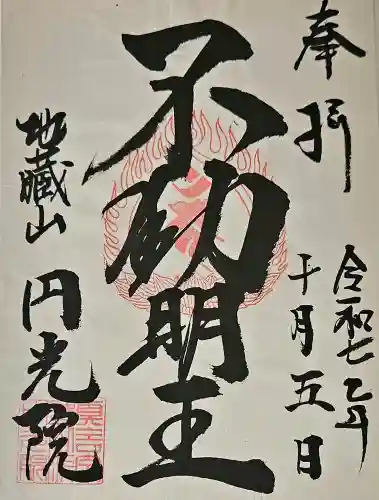 奉拝
令和七年
十月五日
不動明王
地藏山
円光院